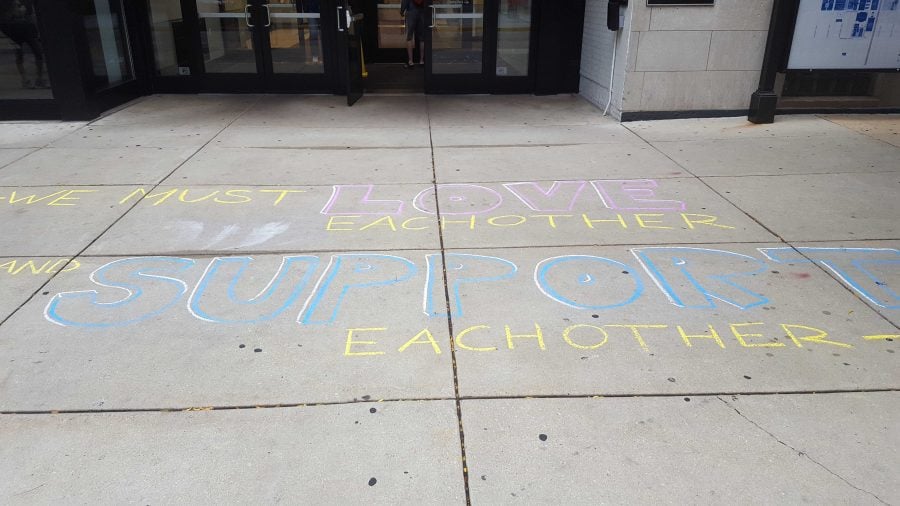 -WE MUST LOVE
EACHOTHER
AND SUPPORT
EACHOTHER-